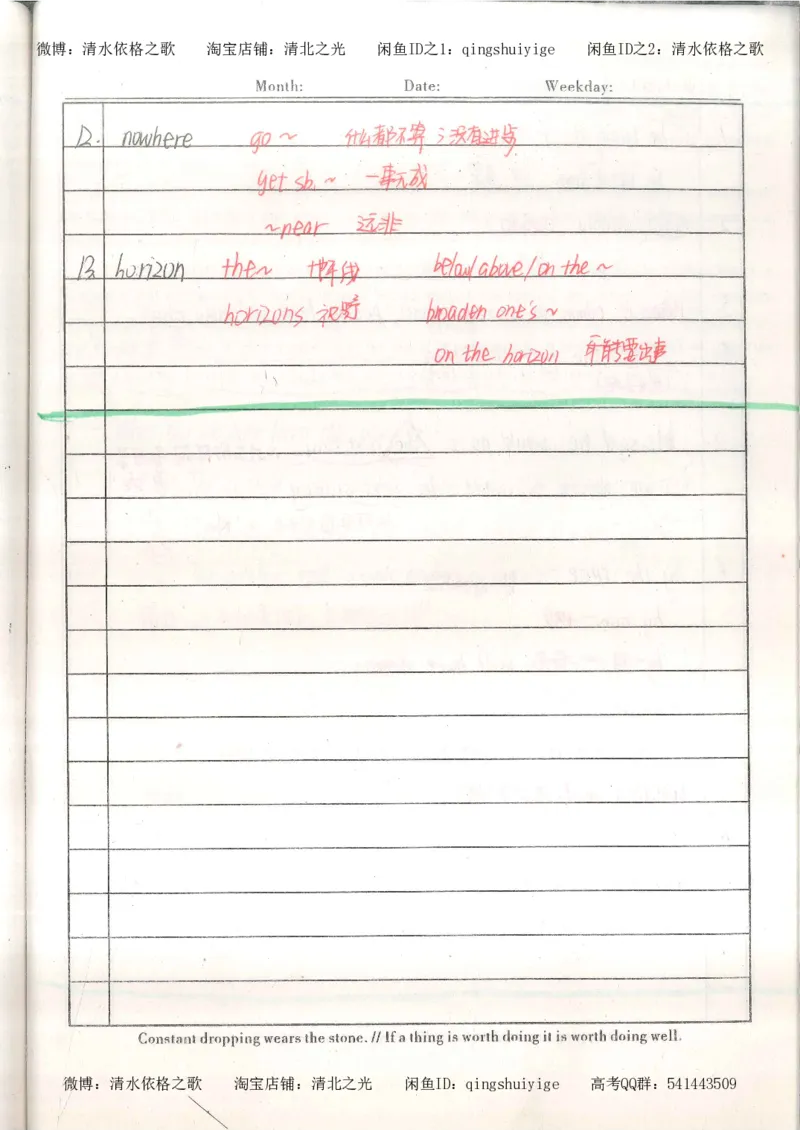 微博：清水依格之歌 淘宝店铺：清北之光 闲鱼ID之1：qingshuiyige 闲鱼ID之2：清水依格之歌
Month: Date: Weekday:
12. nowhere go ~ 什么都不算；没有进步
get sb. ~ 一事无成
~near 远非
13. horizon the~ 地平线 below/above/on the ~
horizons 视野 broaden one's ~
on the horizon 牙转要出事
Constant dropping wears the stone. // If a thing is worth doing it is worth doing well.
微博：清水依格之歌 淘宝店铺：清北之光 闲鱼ID：qingshuiyige 高考QQ群：541443509